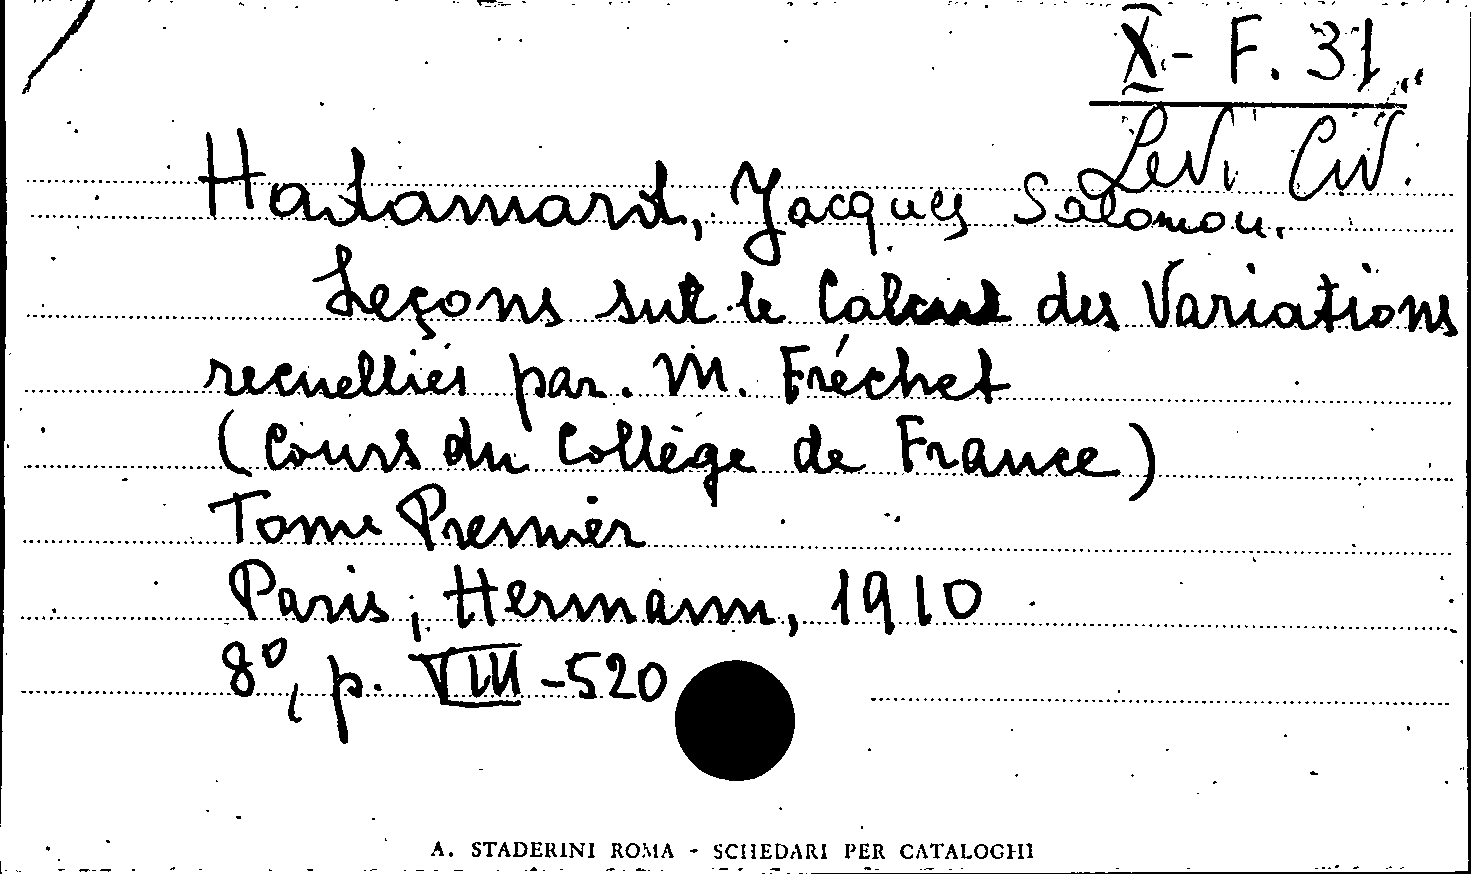 X - F. 31
Levi Civ.
Hadamard, Jacques Salomon.
Leçons sur le Calcul des Variations
recuellies par. M. Fréchet
(Cours du Collège de France)
Tome Premier
Paris, Hermann, 1910
8º, p. VIII-520
A. STADERINI ROMA - SCHEDARI PER CATALOGHI